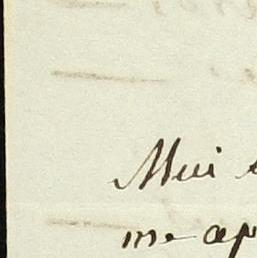 Mui
me ap